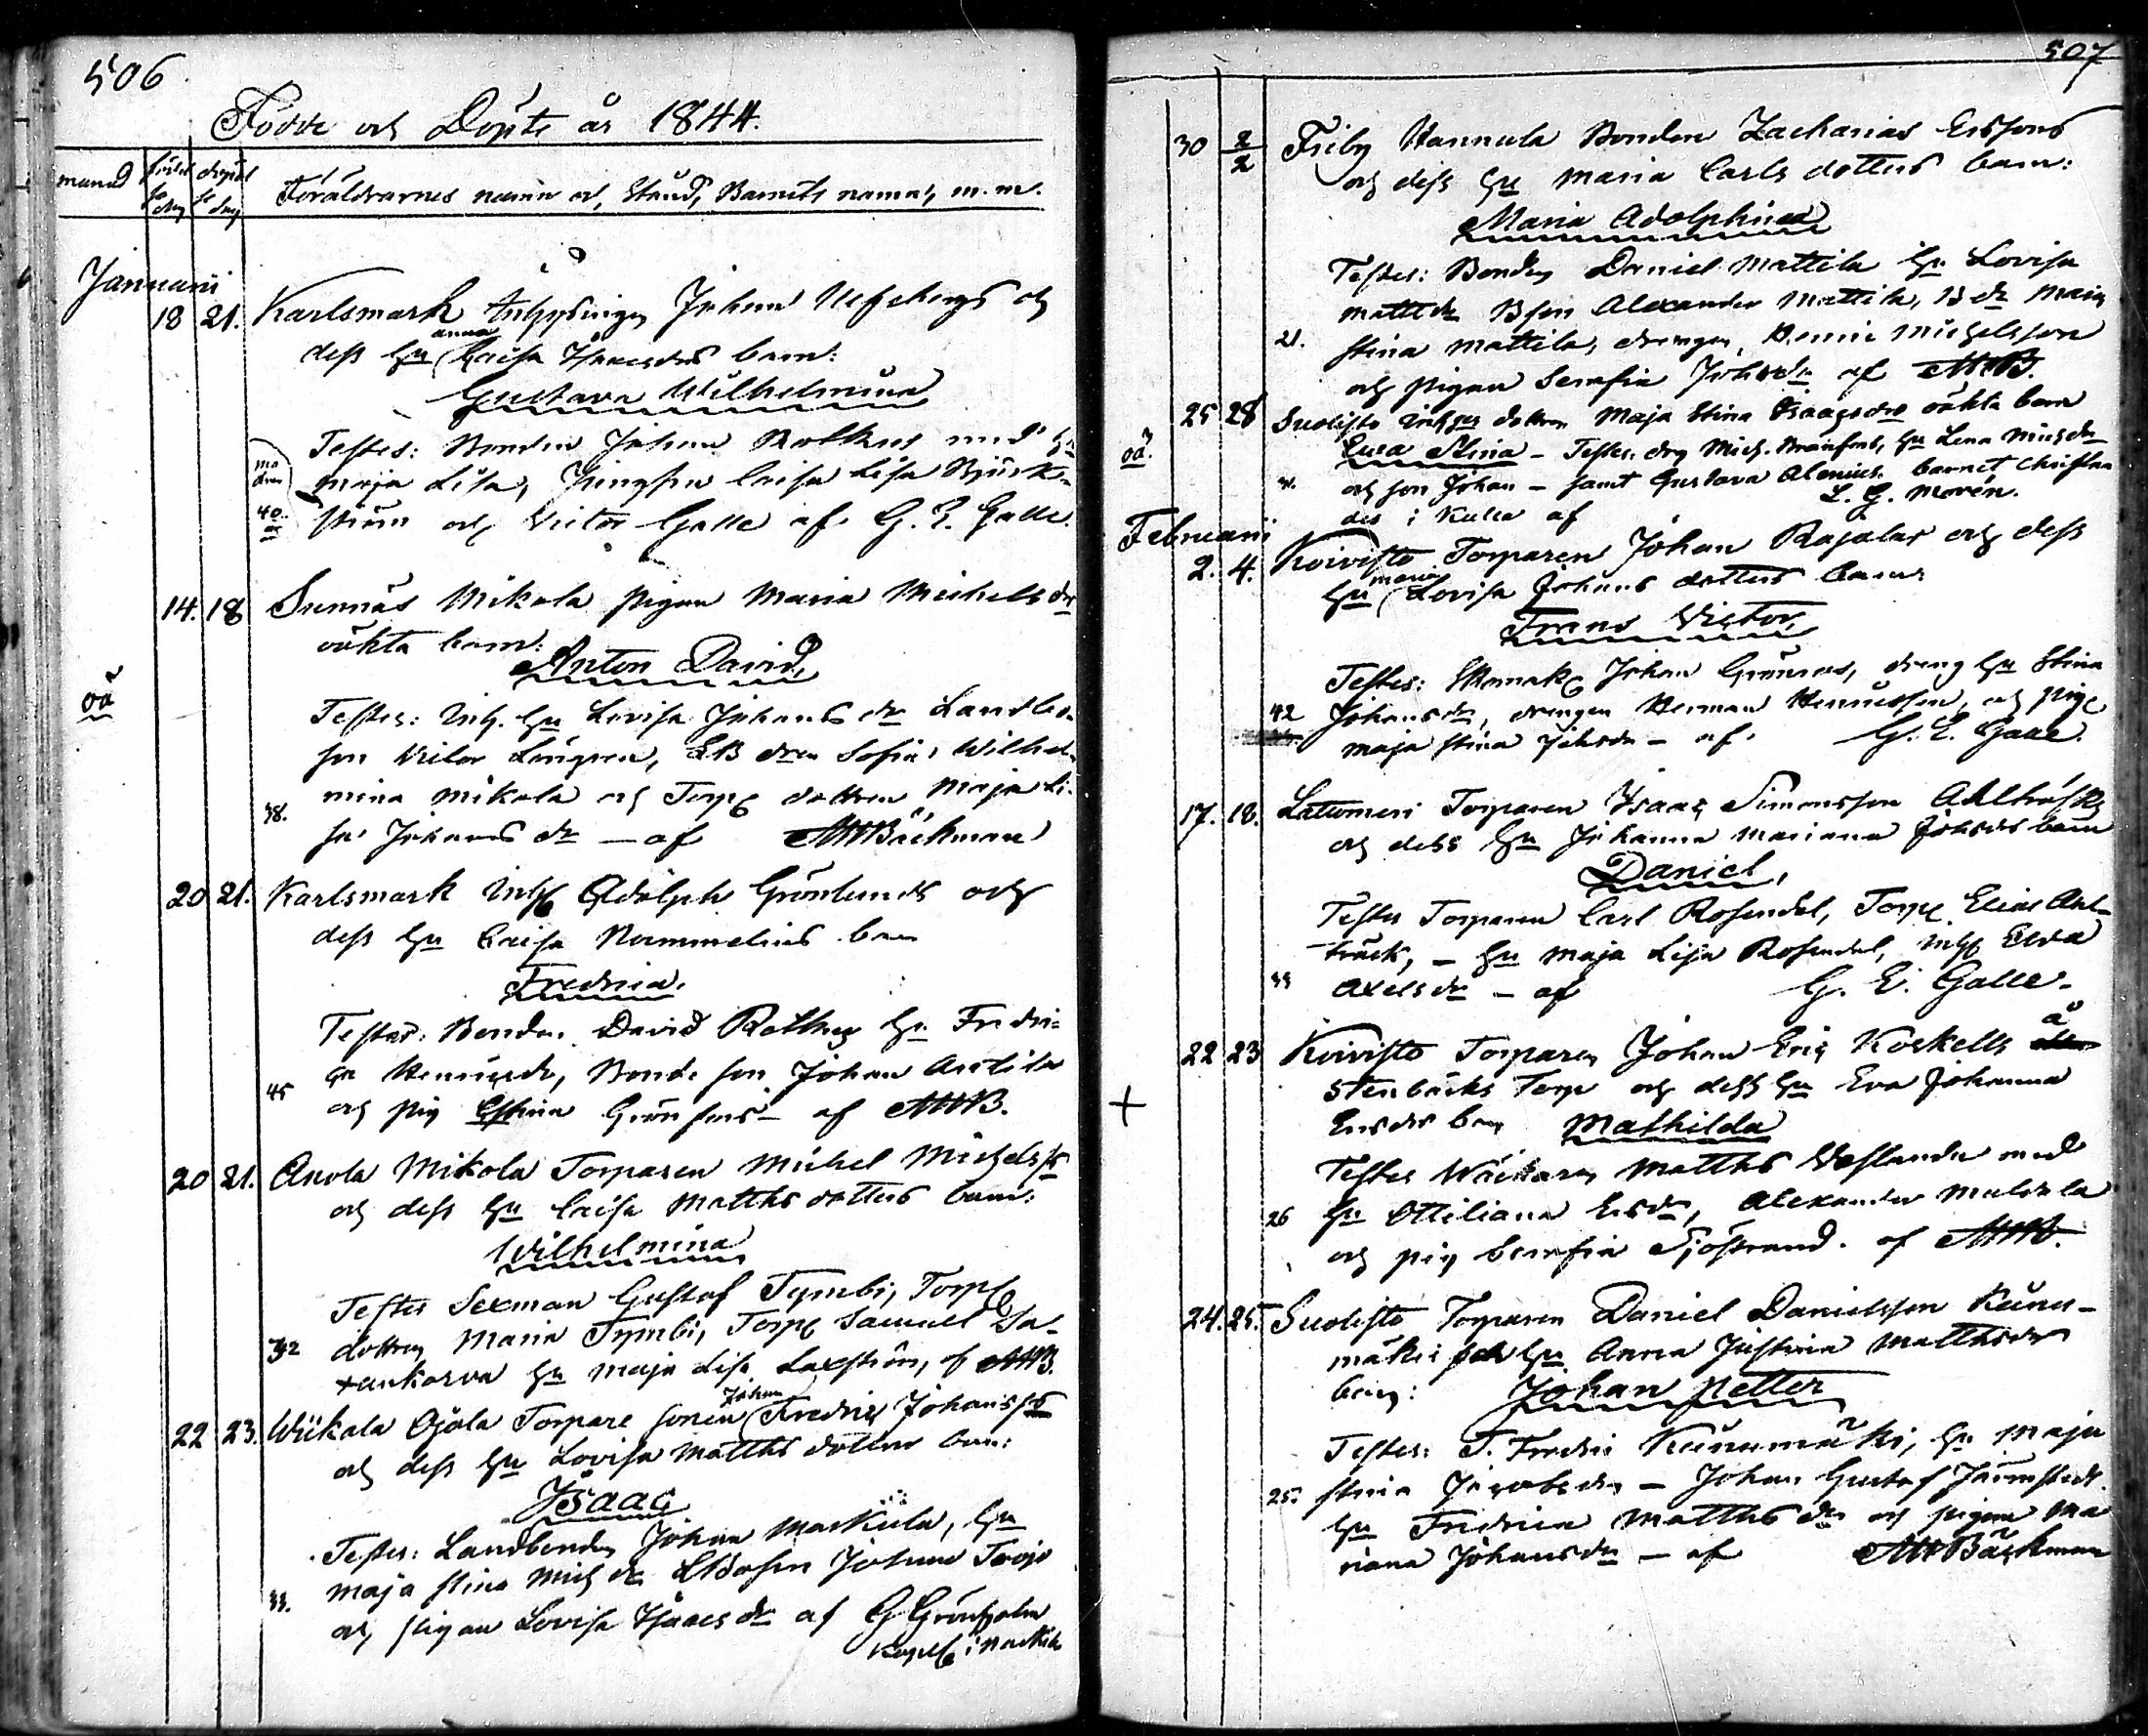 506
Födde och Döpte år 1844.
månad födelse dag döpelse dag Föräldrarnes namn och Stånd, Barnets namn, m.m.
Januarii
18 21. Karlsmark Inhysingen Johan och
anna
dess hu Caisa Isaacsdrs barn:
Gustava Wilhelmina
Testes: Bonden Johan Rothus med hu
mo
dren
maja Lisa, Jungfru Caisa Lisa Björk-
40
år
ström och Victor Galle af G. E. Galle.
14. 18 Sunnäs Mikola pigan Maria Michelsdrs
oäkta barn:
Anton David,
oä
Testes: Inh. hu Lovisa Johansdr Landbo-
son Victor Löngren, LB dren Sofia Wilhel-
mina Mikola och Torp dottren Maja Li-
38.
sa Johansdr — af MWBäckman
20 21. Karlsmark Inh Adolph Grönlunds och
dess hu Caisa Nummelins barn
Fredrica.
Testes: Bonden David Rothus hu Fredri-
ca Henricsdr, Bondeson Johan Antila
45
och pig Stina Grönfors af MWB.
20 21. Anola Mikola Torparen Michel Michelss
och dess hu Caisa Matthsdotters barn:
Wilhelmina
Testes Sexman Gustaf Tymbi, Torp
32 dottren Maria Tymbi, Torp Samuel Sa-
xankorva hu Maja Lisa Laxström, af MWB.
Johan
22 23. Wiikala Ojala Torpare sonen Fredric Johanss
och dess hu Lovisa Matths dotters barn:
Isaac
Testes: Landbonden Johan Markula, hu
maja stina Mich dr Johan
33.
och pigan Lovisa Isaacsdr af G Grönholm
Kapell i
507
30 2/2 Friby Hannula Bonden Zacharias Erssons
och dess hu Maria Carls dotters barn:
Maria Adolphina
Testes: Bonden Daniel Mattila hu Lovisa
Mattdr Bson Alexander Mattila, B dr Maja
21.
stina Mattila, drengen Henric Michelsson
och pigan Serafia Johsdr af MWB.
25 28 Suolisto Inhges dottren Maja Stina Isaacsdrs oäkta barn
oä.
Eva Stina - Testes: drg Mich. hu Lena Michsdr
och son Johan - samt Gustava Alenius. barnet Christna-
des i Kulla af L. G. Morén.
Februarii
2. 4. Koivisto Torparen Johan Rajalas och dess
maria
hu Lovisa Johans dotters barn
Frans Victor,
Testes: Skomak Johan Grönroos, dreng hu Stina
42 Johansdr, drengen Herman Henricsson, och pig
maja stina Johsdr - af G. E. Galle.
17. 18. Latumeri Torparen Isaac Simonsson
och dess hu Johanna Mariana Johsdrs barn
Daniel,
Testes Torparen Carl Rosendal, Torp Elias Ahl-
träsk, - hu Maja Lisa Rosendal, Inh Elva
33 Axelsdr - af G. E. Galle.
22 23 Koivisto Torparen Johan Eric Koskells å
Stenbäcks Torp och dess hu Eva Johanna
+
Ersdrs barn Mathilda
Testes Wäckaren Matths Westlander med
26 hu Ottiliana Ersdr, Alexander
och pig Serafia Sjöstrand. af MWB.
24. 25. Suolisto Torparen Daniel Danielsson Keinu-
mäki och hu Anna Justina Matthsdrs
barn: Johan Petter
Testes: T. Fredric Keinumäki, hu Maja
25. stina Jacobsdr - Johan Gustaf Järnstedt
hu Fredrica Matthsdr och pigan Ma
riana Johansdr - af MWBäckman